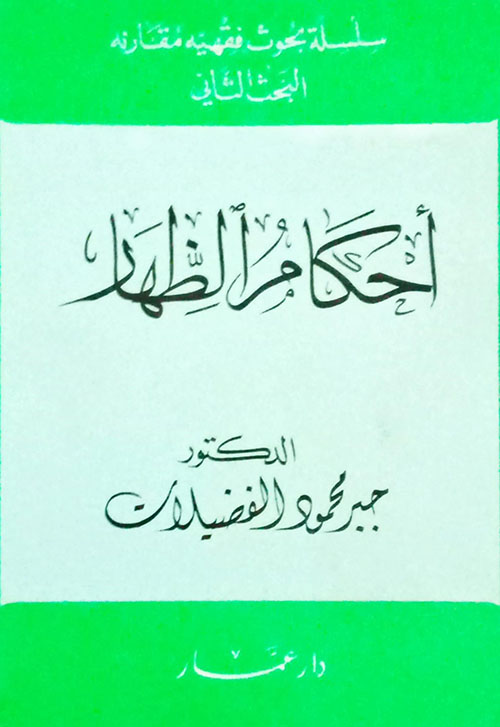 سلسلة بحوث فقهيه مقارنه
البحث الثاني
أحكام الظِّهار
الدكتور
جبر محمود الفضيلات
دار عمّار